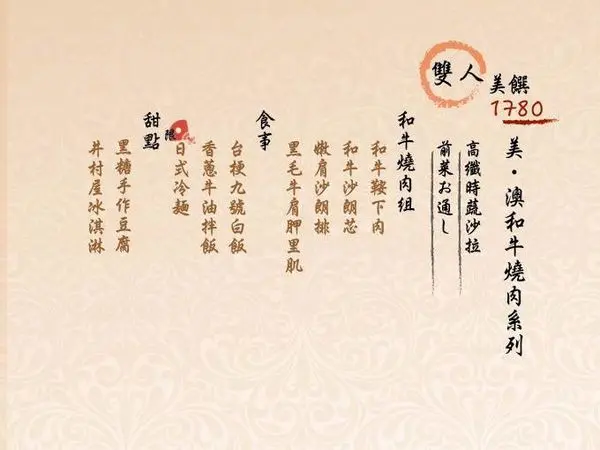 雙人美饌
1780
美・澳和牛燒肉系列
高纖時蔬沙拉
前菜お通し
和牛燒肉組
和牛鞍下肉
和牛沙朗芯
嫩肩沙朗排
黑毛牛肩胛里肌
食事
台梗九號白飯
香蔥牛油拌飯
限
日式冷麵
甜點
黑糖手作豆腐
井村屋冰淇淋